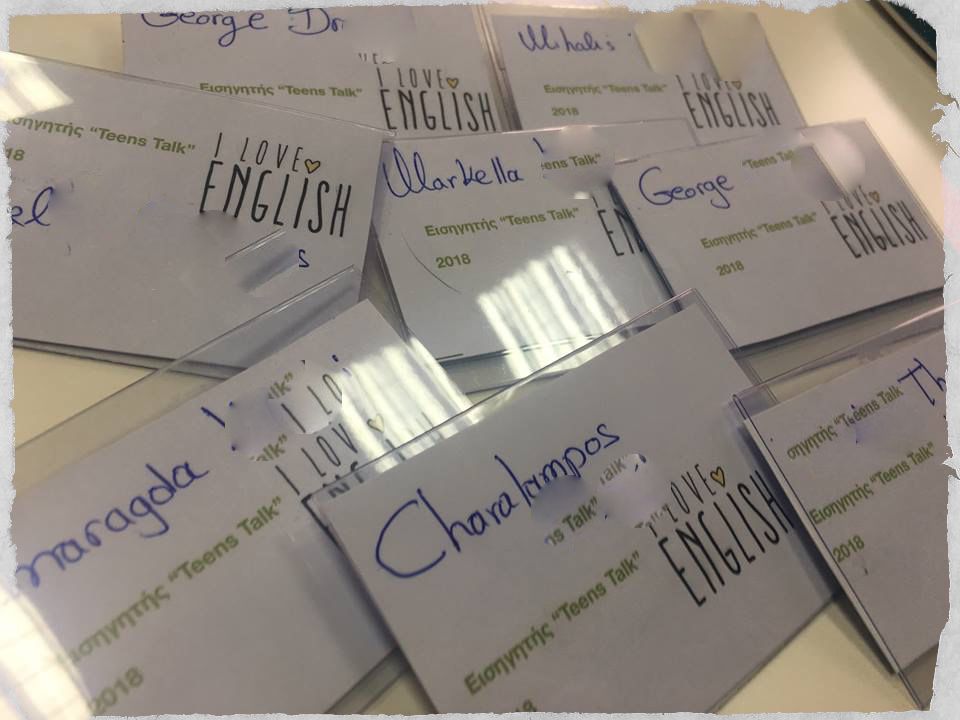 George Dr
Εισηγητής "Teens Talk"
I LOVE
ENGLISH
Mihalis
Εισηγητής "Teens Talk"
I LOVE
ENGLISH
σηγητής "Teens Talk"
18
el
I LOVE
ENGLISH
s
Markella
ens Talk"
Εισηγητής "Teens Talk"
2018
EN
George
"Teens Tal
Εισηγητής "Teens Talk"
2018
LOVE
ENGLISH
maragda
lk"
I LO
alk"
I LOV
Εισηγητής "Teens Talk"
2018
Charalampos
alk
ns Talk"
LOVE
ENGLISH
Εισηγητής "Teens Talk"
Th
σηγητής "Teens Talk
Εισηγητής "Teens Talk"
2018